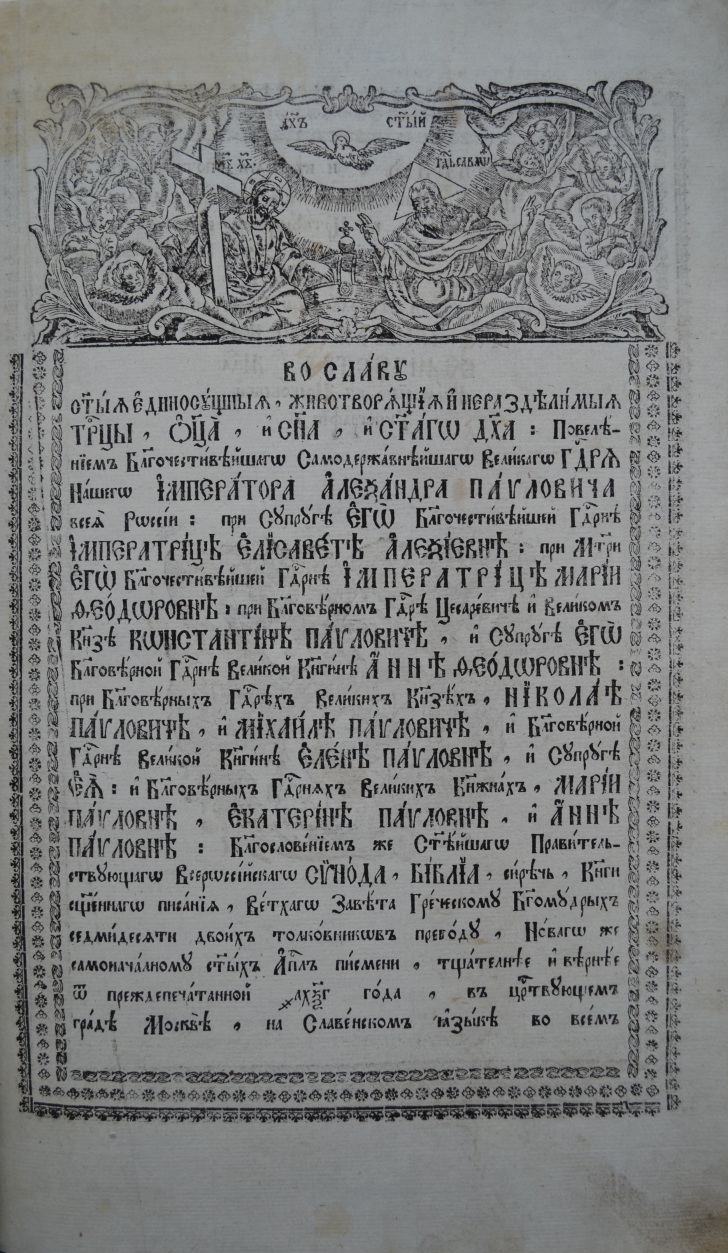 ДХЪ СТЫЙ
ІС ХС
ГДЬ САВАѠ
ВО СЛАВУ
СТЫ́Ѧ Є҆ДИНОСУ́ЩНЫѦ, ЖИВОТВОРѦ́ЩЇѦ И҆ НЕРАЗДѢЛИ́МЫѦ
ТРⷪ҇ЦЫ, Ѻ҆ЦА̀, и҆ СН҃А, и҆ СТА́ГѠ ДХ҃А: Повелѣ́-
нїемъ Благочести́вѣйшагѡ Самодержа́внѣйшагѡ Вели́кагѡ ГДⷭ҇РѦ
На́шегѡ І҆МПЕРА́ТОРА А҆ЛЕѮА́НДРА ПА́VЛОВИЧА
всеѧ̀ Рѡссі́и: при Супру́гѣ Є҆ГѠ̀ Благочести́вѣйшей Гдⷭ҇рнѣ
І҆МПЕРАТРІ́ЦѢ Є҆ЛІСАВЕ́ТѢ А҆ЛЕѮІ́ЕВНѢ: при Мт҃ри
Є҆ГѠ̀ Благочести́вѣйшей Гдⷭ҇рнѣ І҆МПЕРАТРІ́ЦѢ МАРІ́И
Ѳ҆ЕО́ДѠРОВНѢ: при Благовѣ́рномъ Гдⷭ҇рѣ Цесаре́вичѣ и҆ Вели́комъ
Кн҃зѣ КѠНСТАНТІ́НѢ ПА́VЛОВИЧѢ, и҆ Супру́гѣ Є҆ГѠ̀
Благовѣ́рной Гдⷭ҇рнѣ Вели́кой Кнги́нѣ А҆́ННѢ Ѳ҆ЕО́ДѠРОВНѢ:
при Благовѣ́рныхъ Гдⷭ҇рѣхъ Вели́кихъ Кн҃зѣхъ, НІКОЛА́Ѣ
ПА́VЛОВИЧѢ, и҆ МІХАИ́ЛѢ ПА́VЛОВИЧѢ, и҆ Благовѣ́рной
Гдⷭ҇рнѣ Вели́кой Кнги́нѣ Є҆ЛЕ́НѢ ПА́VЛОВНѢ, и҆ Супру́гѣ
Є҆Ѧ̀: и҆ Благовѣ́рныхъ Гдⷭ҇рнѧхъ Вели́кихъ Кнѧжна́хъ, МАРІ́И
ПА́VЛОВНѢ, Є҆КАТЕРІ́НѢ ПА́VЛОВНѢ, и҆ А҆́ННѢ
ПА́VЛОВНѢ: Благослове́нїемъ же Ст҃ѣ́йшагѡ Прави́тель-
ствующагѡ Всерѡссі́йскагѡ СѴНО́ДА, БІ́БЛІА, си́рѣчь, Кни́ги
сщ҃е́ннагѡ писа́нїѧ, Ве́тхагѡ Завѣ́та Гре́ческому Бг҃ому́дрыхъ
седми́десѧти двои́хъ толко́вникѡвъ прево́ду, Но́вагѡ же
самонача́лному ст҃ы́хъ А҆пⷭ҇л пи́смени, тща́телнѣе и҆ вѣ́рнѣе
ѿ преждепеча́танной ҂ахѯг го́да, въ црⷭ҇твующемъ
гра́дѣ Москвѣ̀, на Славе́нскомъ ѩ҆зы́кѣ во все́мъ